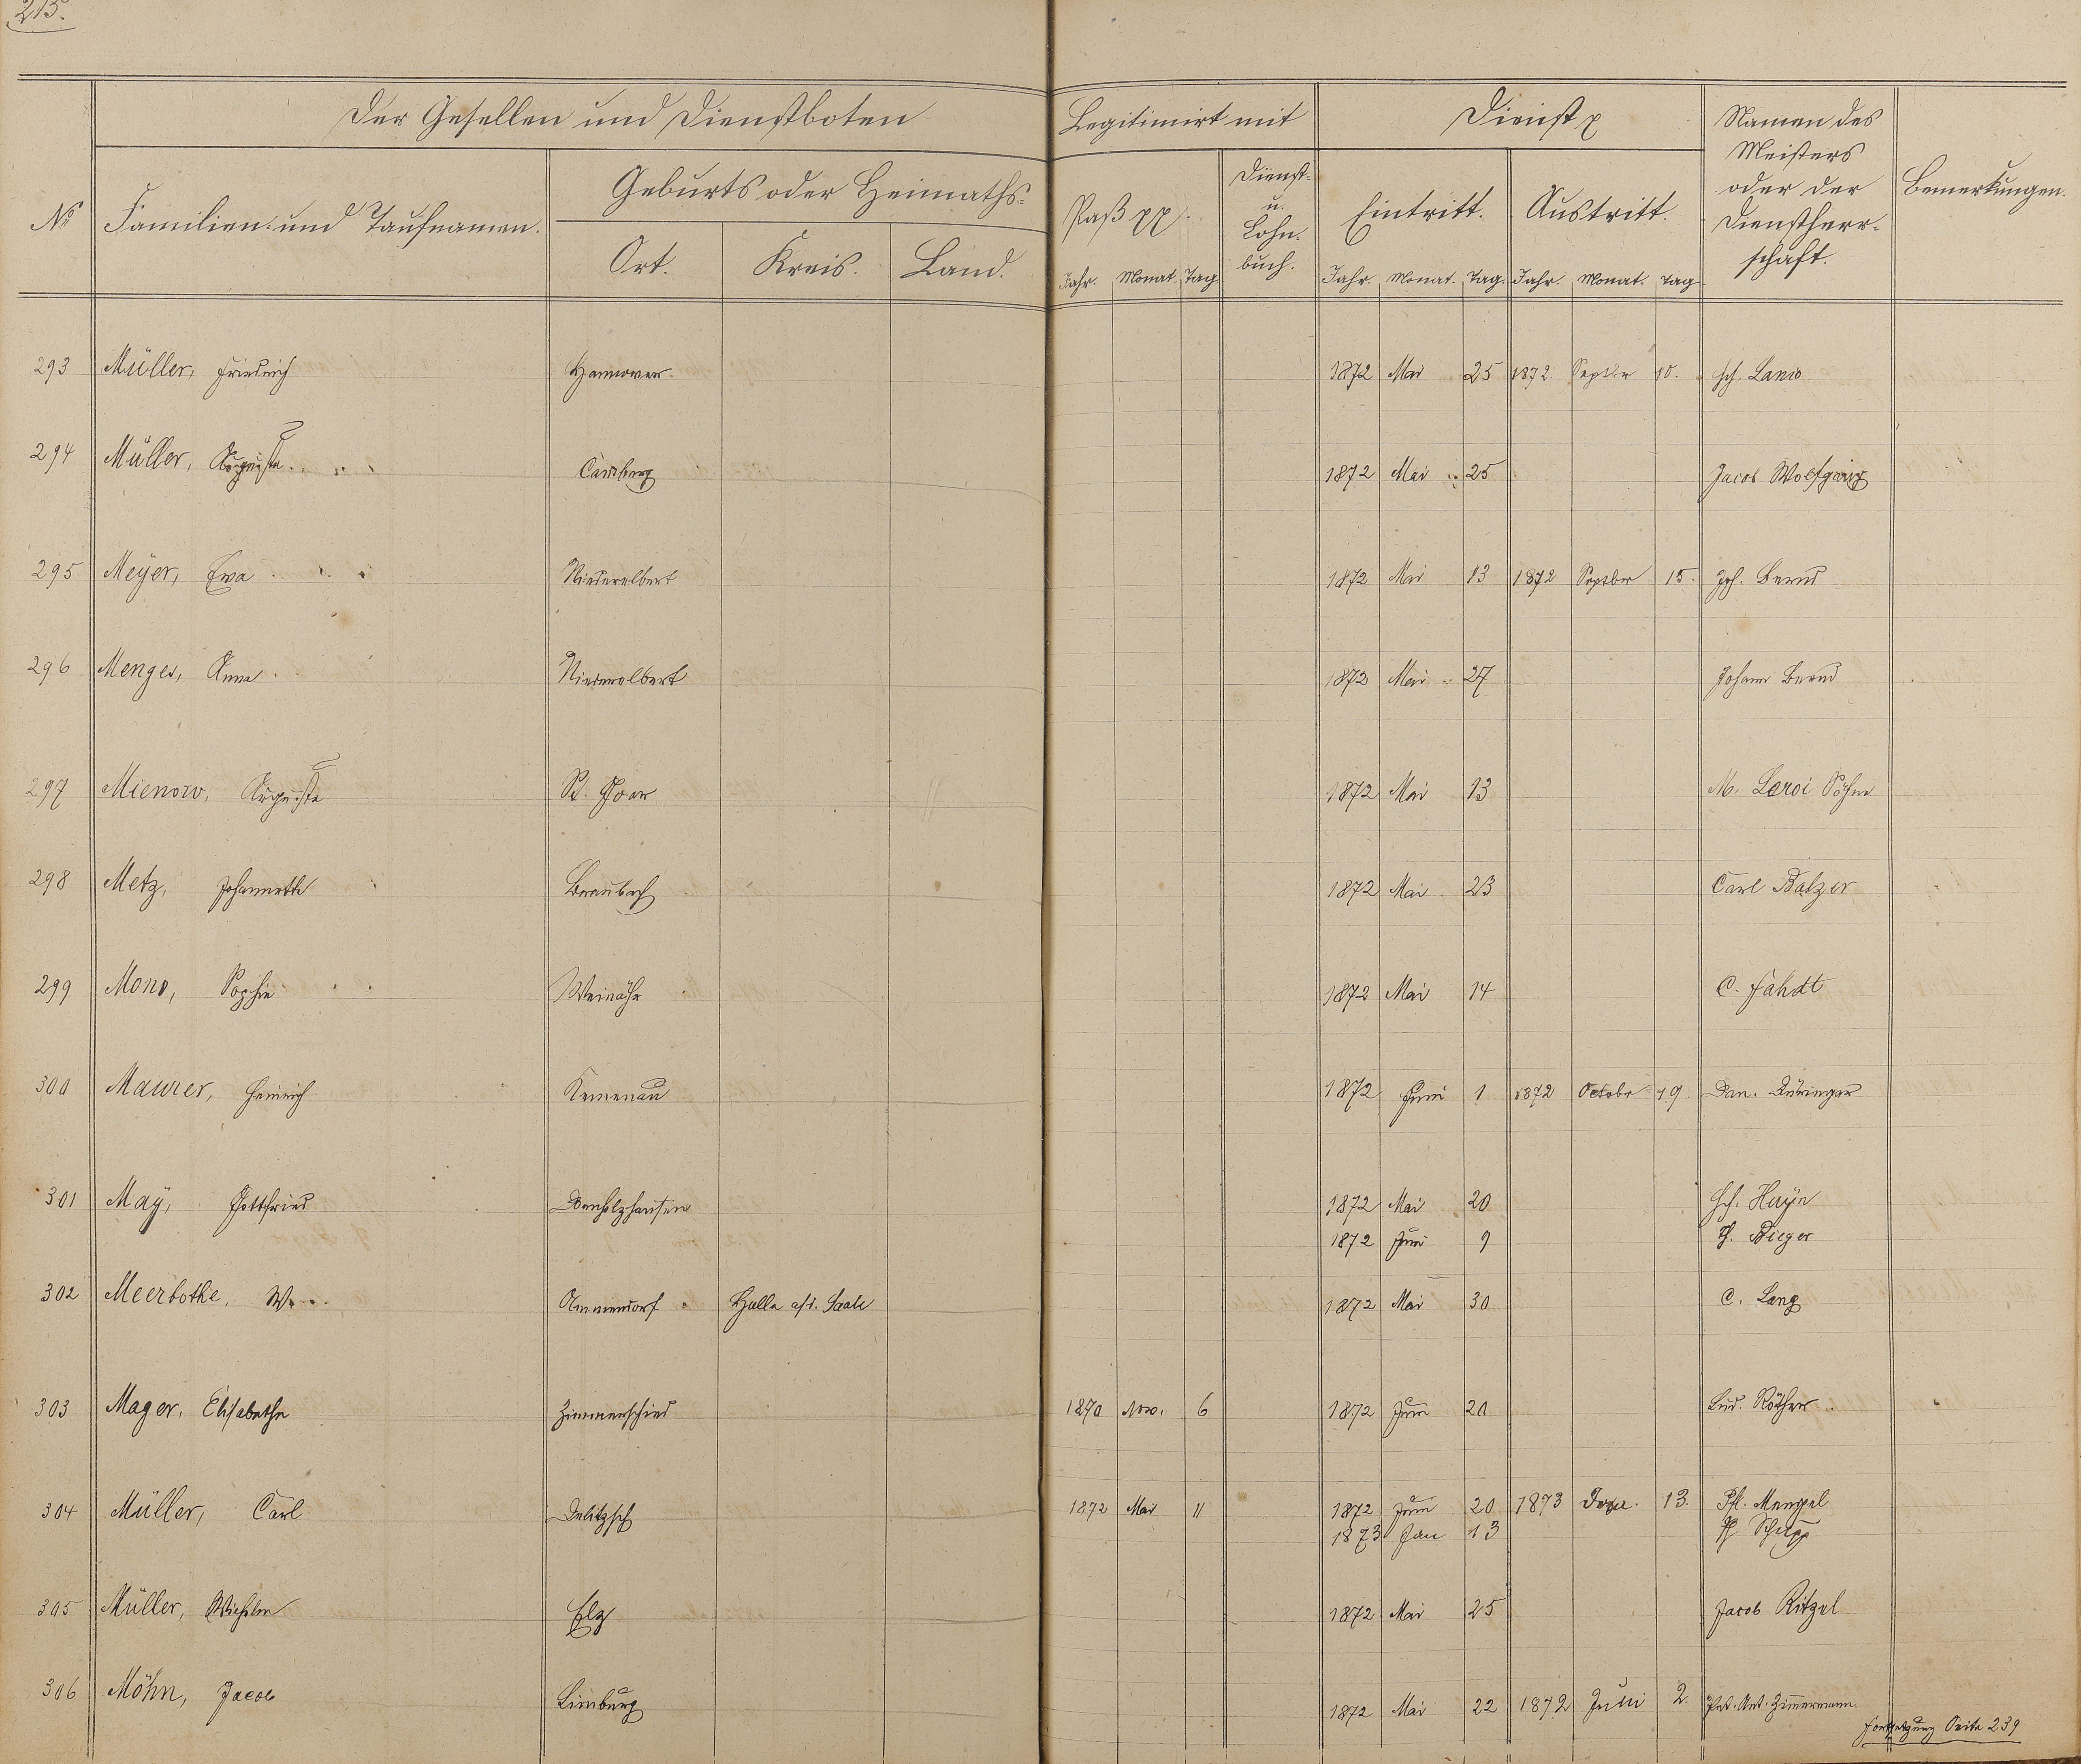 213.
Der Gesellen und Dienstboten
Legitimirt mit
Dienst
Namen des
Meisters
oder der
Dienstherr-
schaft.
Bemerkungen.
No
Familien- und Taufnamen.
Geburts oder Heimaths-
Ort. Kreis. Land.
Paß
Jahr. Monat. Tag
Dienst-
u.
Lohn-
buch.
Eintritt. Austritt.
Jahr. Monat. Tag. Jahr. Monat. Tag
293 Müller, Friedrich Hannover. 1872 Mai 25 1872 Septbr 10.
294 Müller, Auguste Camberg 1872 Mai 25 Jacob Wolfgang
295 Meÿer, Eva Niederelbert 1872 Mai 13 1872 Septbr 15. Joh. Bernd
296 Menges, Anna Niederelbert 1872 Mai 27 Johann Bernd
297 Mienow, Auguste St. Goar 1872 Mai 13 M. Leroi Söhne
298 Metz, Johannette Braubach 1872 Mai 23 Carl Balzer
299 Mono, Sophie Weinähr 1872 Mai 14 C. Fahdt
300 Maurer, Heinrich Kemenau 1872 Juni 1 1872 Octobr 19. Dan. Düringer
301 Maÿ, Gottfried Dornholzhausen 1872 Mai 20 Hch. Haÿn
1872 Juni 9 Bieger
302 Meerbothe, W. Ammendorf Halle a/d. Saale 1872 Mai 30 C. Lang
303 Mager, Elisabethe Zimmerschied 1870 Nov. 6 1872 Juni 20
304 Müller, Carl Delitzsch 1872 Mai 11 1872 Juni 20 1873 13. Ph. Mengel
1873 Jan 13 Schupp
305 Müller, Wilhelm Elz 1872 Mai 25 Jacob Ritzel
306 Möhn, Jacob Limburg 1872 Mai 22 1872 Juni 2 Pet. Ant. Zimmermann.
Fortsetzung Seite 239